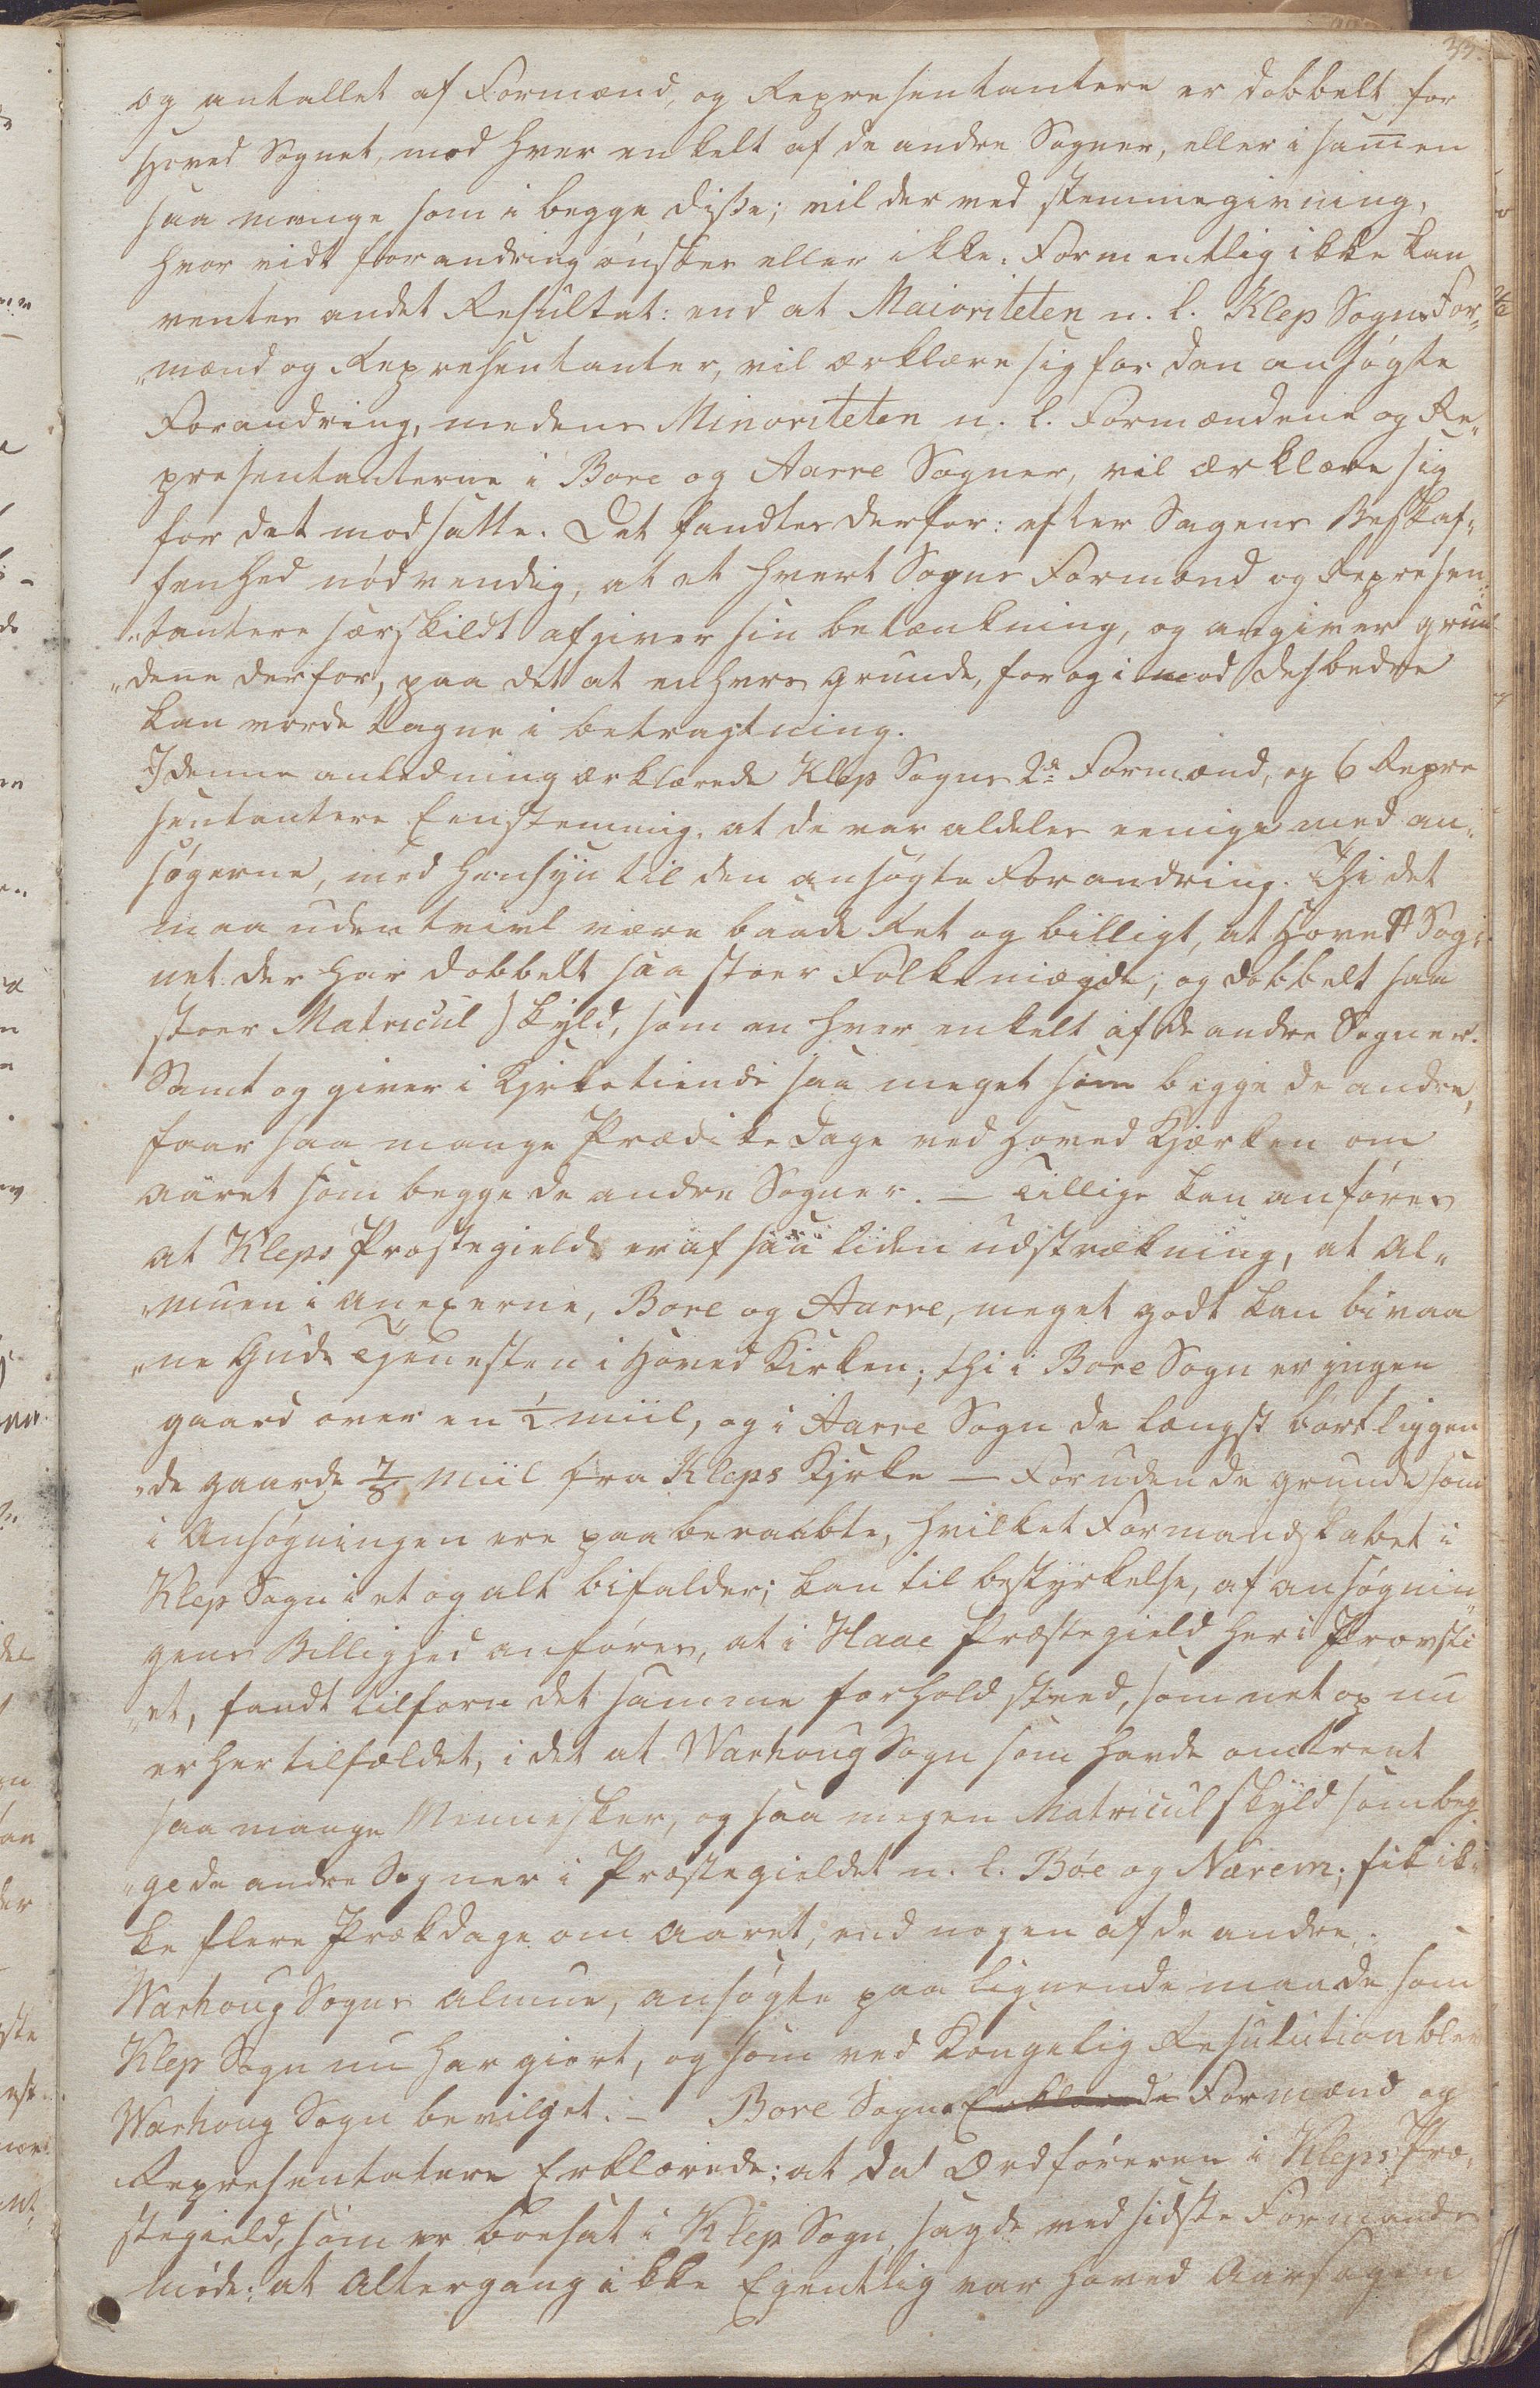 33.
og antallet af Formænd, og Represhentantere er dobbelt for
Hoved Sognet, mod hver enkelt af de andre Sogner, eller i sam̅en
saa mange som i begge disse; vil der ved stemmegivning,
hvor vidt forandring ønskes eller ikke. Formentlig ikke kan
ventes andet Resultat: end at Maioriteten n. l. Klep Sogns For„
„mænd og Representanter, vil ærklære sig for den ansøgte
Forandring, medens Minoriteten n. l. Formændene og Re„
presentanterne i Bore og Aarre Sogner, vil ærklære sig
for det modsatte. Det fandtes derfor: efter Sagens Beskaf„
fenhed nødvendig, at et hvert Sogns Formænd og Represen„
„tantere særskildt afgiver sin betænkning, og angiver grun
„dene derfor, paa det at enhvers grunde, for og imod desbedre
kan vorde tagne i betragtning.
I denne anledning ærklærede Klep Sogns 2de Formænd, og 6 Repre
sentantere Eenstemmig, at de var aldeles eenige med an„
søgerne, med Hensyn til den ansøgte Forandring. Thi det
maa uden tvivl være baade Ret og billigt, at Hoved Sog„
net der har dobbelt saa stoer Folkemægde; og dobbelt saa
stoer Matricul Skyld, som en hver enkelt af de andre Sogner.
Samt og giver i Kjrketiende saa meget som begge de andre,
faar saa mange Prædikedage ved Hoved Kjærken om
aaret som begge de andre Sogner. — Tillige kan anføres
at Kleps Prostegield er af saa liden udstrækning, at Al„
„muen i Anexerne, Bore og Aarre, meget godt kan bivaa
„ne Guds Tjenesten i Hoved Kirken; thi i Bore Sogn er jngen
gaard over en ½ miil, og i Aarre Sogn de længst bortliggen
„de gaarde ⅞ Miil fra Kleps Kjrke — Foruden de grunde som
i Ansøgningen ere paaberaabte, hvilket Formandskabet i
Klep Sogn i et og alt bifalder; kan til bestyrkelse, af ansøgnin„
gens Billighed anføres, at i Haae Præstegield her i Provsti
„et, fandt tilforn det samme forhold sted, som netop nu
er her tilfældet, i det at Warhoug Sogn som havde omtrent
saa mange Mennesker, og saa megen Matricul skyld som beg
„ge de andre Sogner i Præstegieldet n. l. Bøe og Nærem; fik ik„
ke flere Prækdage om Aaret, end nogen af de andre.
Warhoug Sogns Almue, ansøgte paa lignende maade som
Klep Sogn nu har giort, og som ved Kongelig Resulution blev
Warhoug Sogn bevilget. — Bore Sogns Erklærede Formænd og
Representatere Erklærede: at da Ordføreren i Kleps Præ„
stegield, som er boesat i Klep Sogn, sagde ved sidste Formands
møde: at Altergang ikke Egentlig var hoved Aarsagen